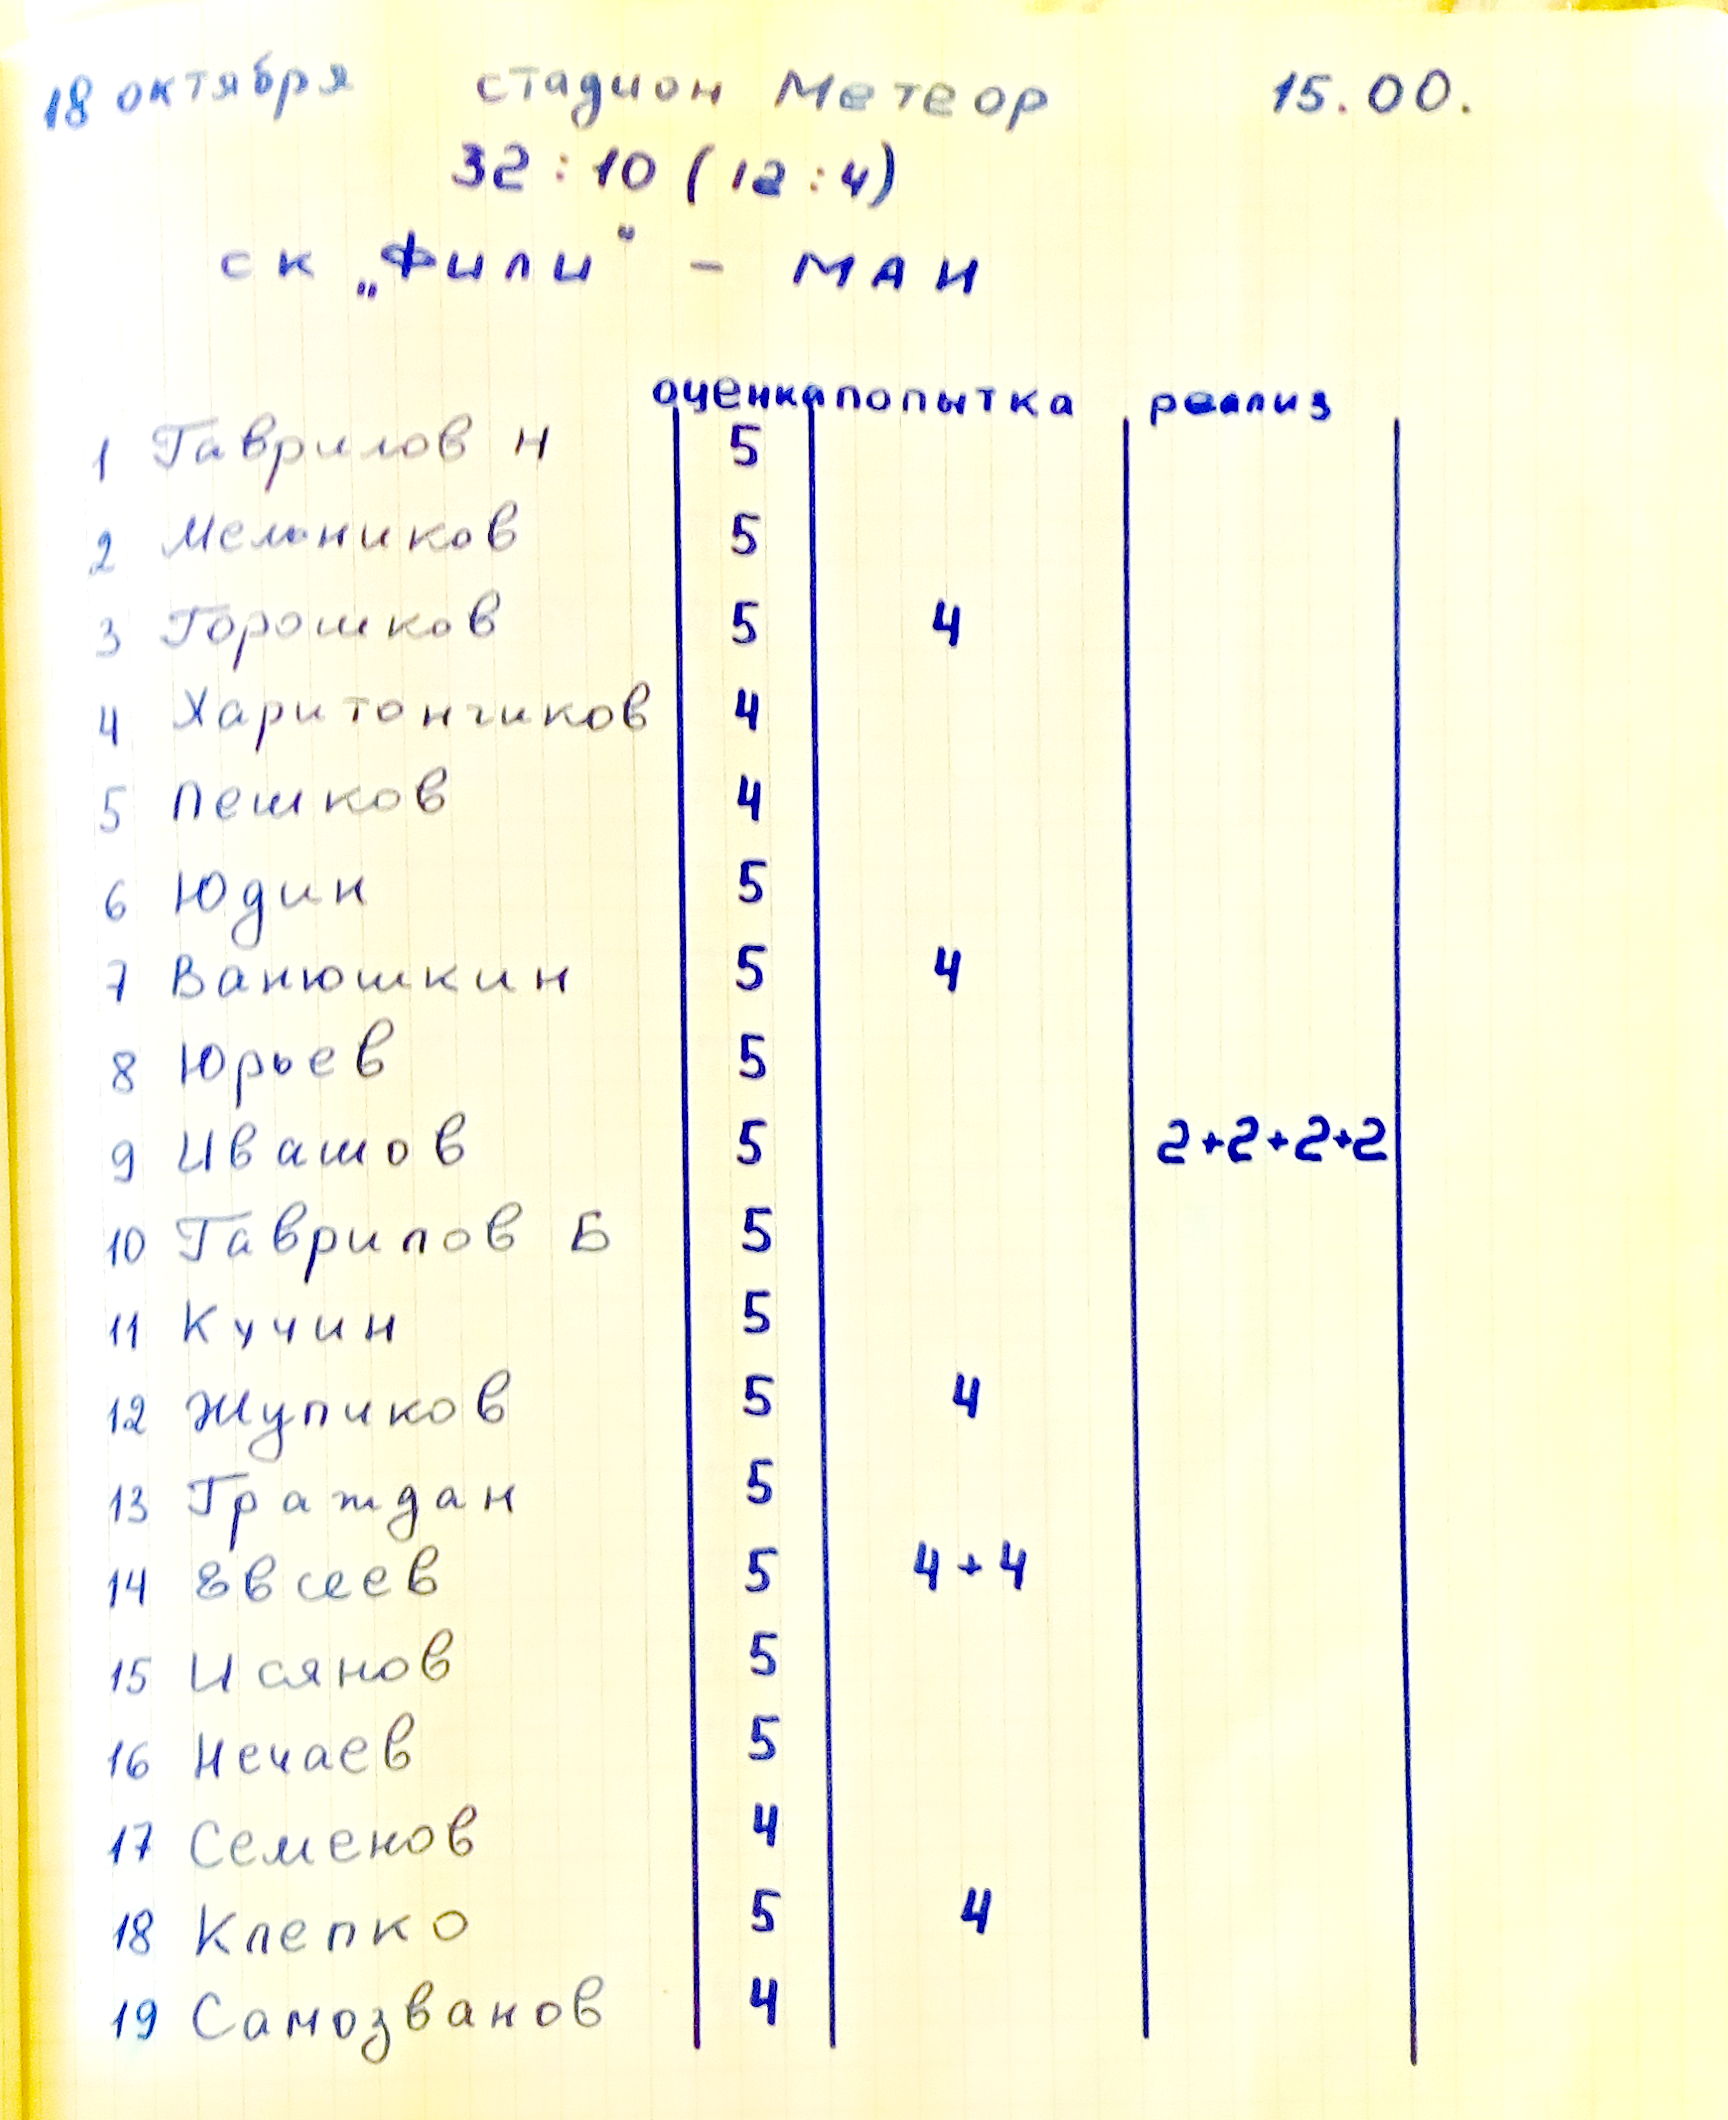 18 октября стадион Метеор 15.00.
32:10 (12:4)
ск „Фили" - МАИ
оценка попытка реализ
1 Гаврилов Н 5
2 Мельников 5
3 Горошков 5 4
4 Харитончиков 4
5 Пешков 4
6 Юдин 5
7 Ванюшкин 5 4
8 Юрьев 5
9 Ивашов 5 2+2+2+2
10 Гаврилов Б 5
11 Кучин 5
12 Жупиков 5 4
13 Граждан 5
14 Евсеев 5 4+4
15 Исянов 5
16 Нечаев 5
17 Семенов 4
18 Клепко 5 4
19 Самозванов 4